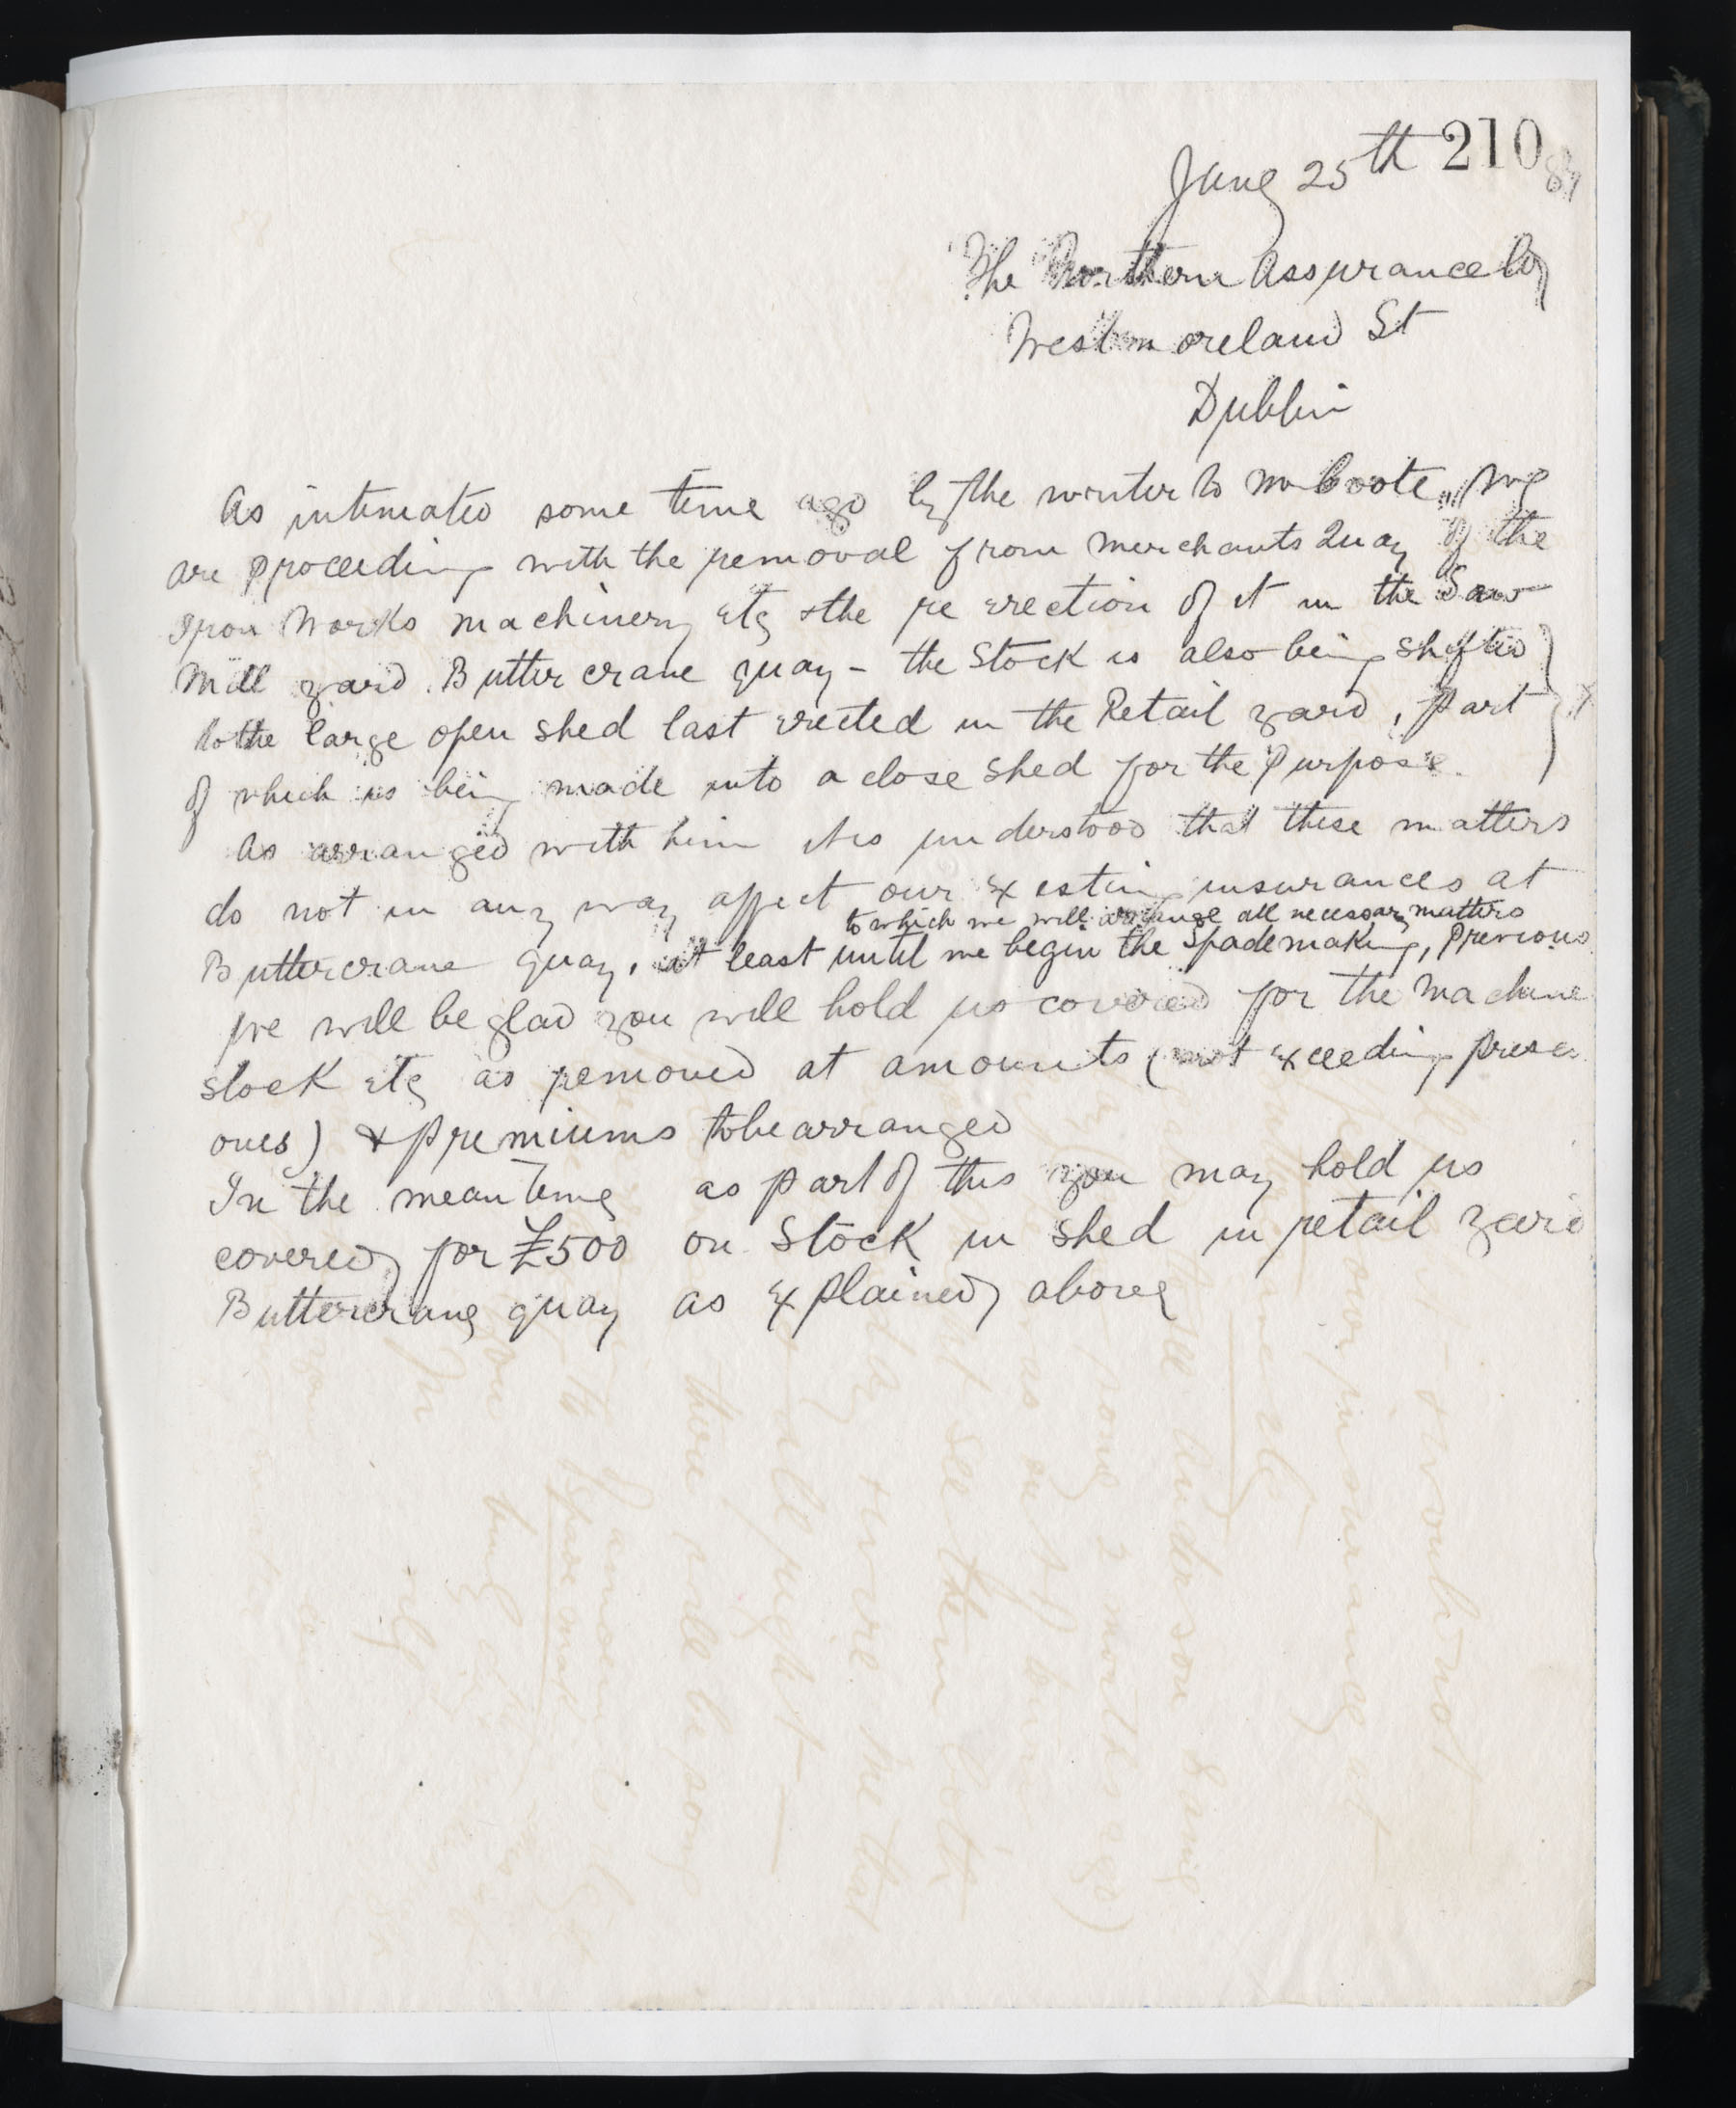 210
June 25th 84
The Northern Assurance Co
Westmoreland St
Dublin
As intimated some time ago by the writer to Mr Coote, we
are proceeding with the removal from Merchants Quay of the
Iron Works machinery etc & the re erection of it in the Saw
Mill yard. Buttercrane quay - the Stock is also being shifted
to the large open shed last erected in the Retail yard, part
of which is being made into a close shed for the purpose.
As arranged with him it is understood that these matters
do not in any way affect our existing insurances at
to which we will arrange all necessary matters
Buttercrane quay, at least until we begin the Spademaking, Previous
We will be glad you will hold us covered for the machine
stock etc as removed at amounts (not exceeding prese
ones) & premiums to be arranged
In the mean time as part of this you may hold us
covered for £500 on Stock in Shed in retail yard
Buttercrane quay as explained above